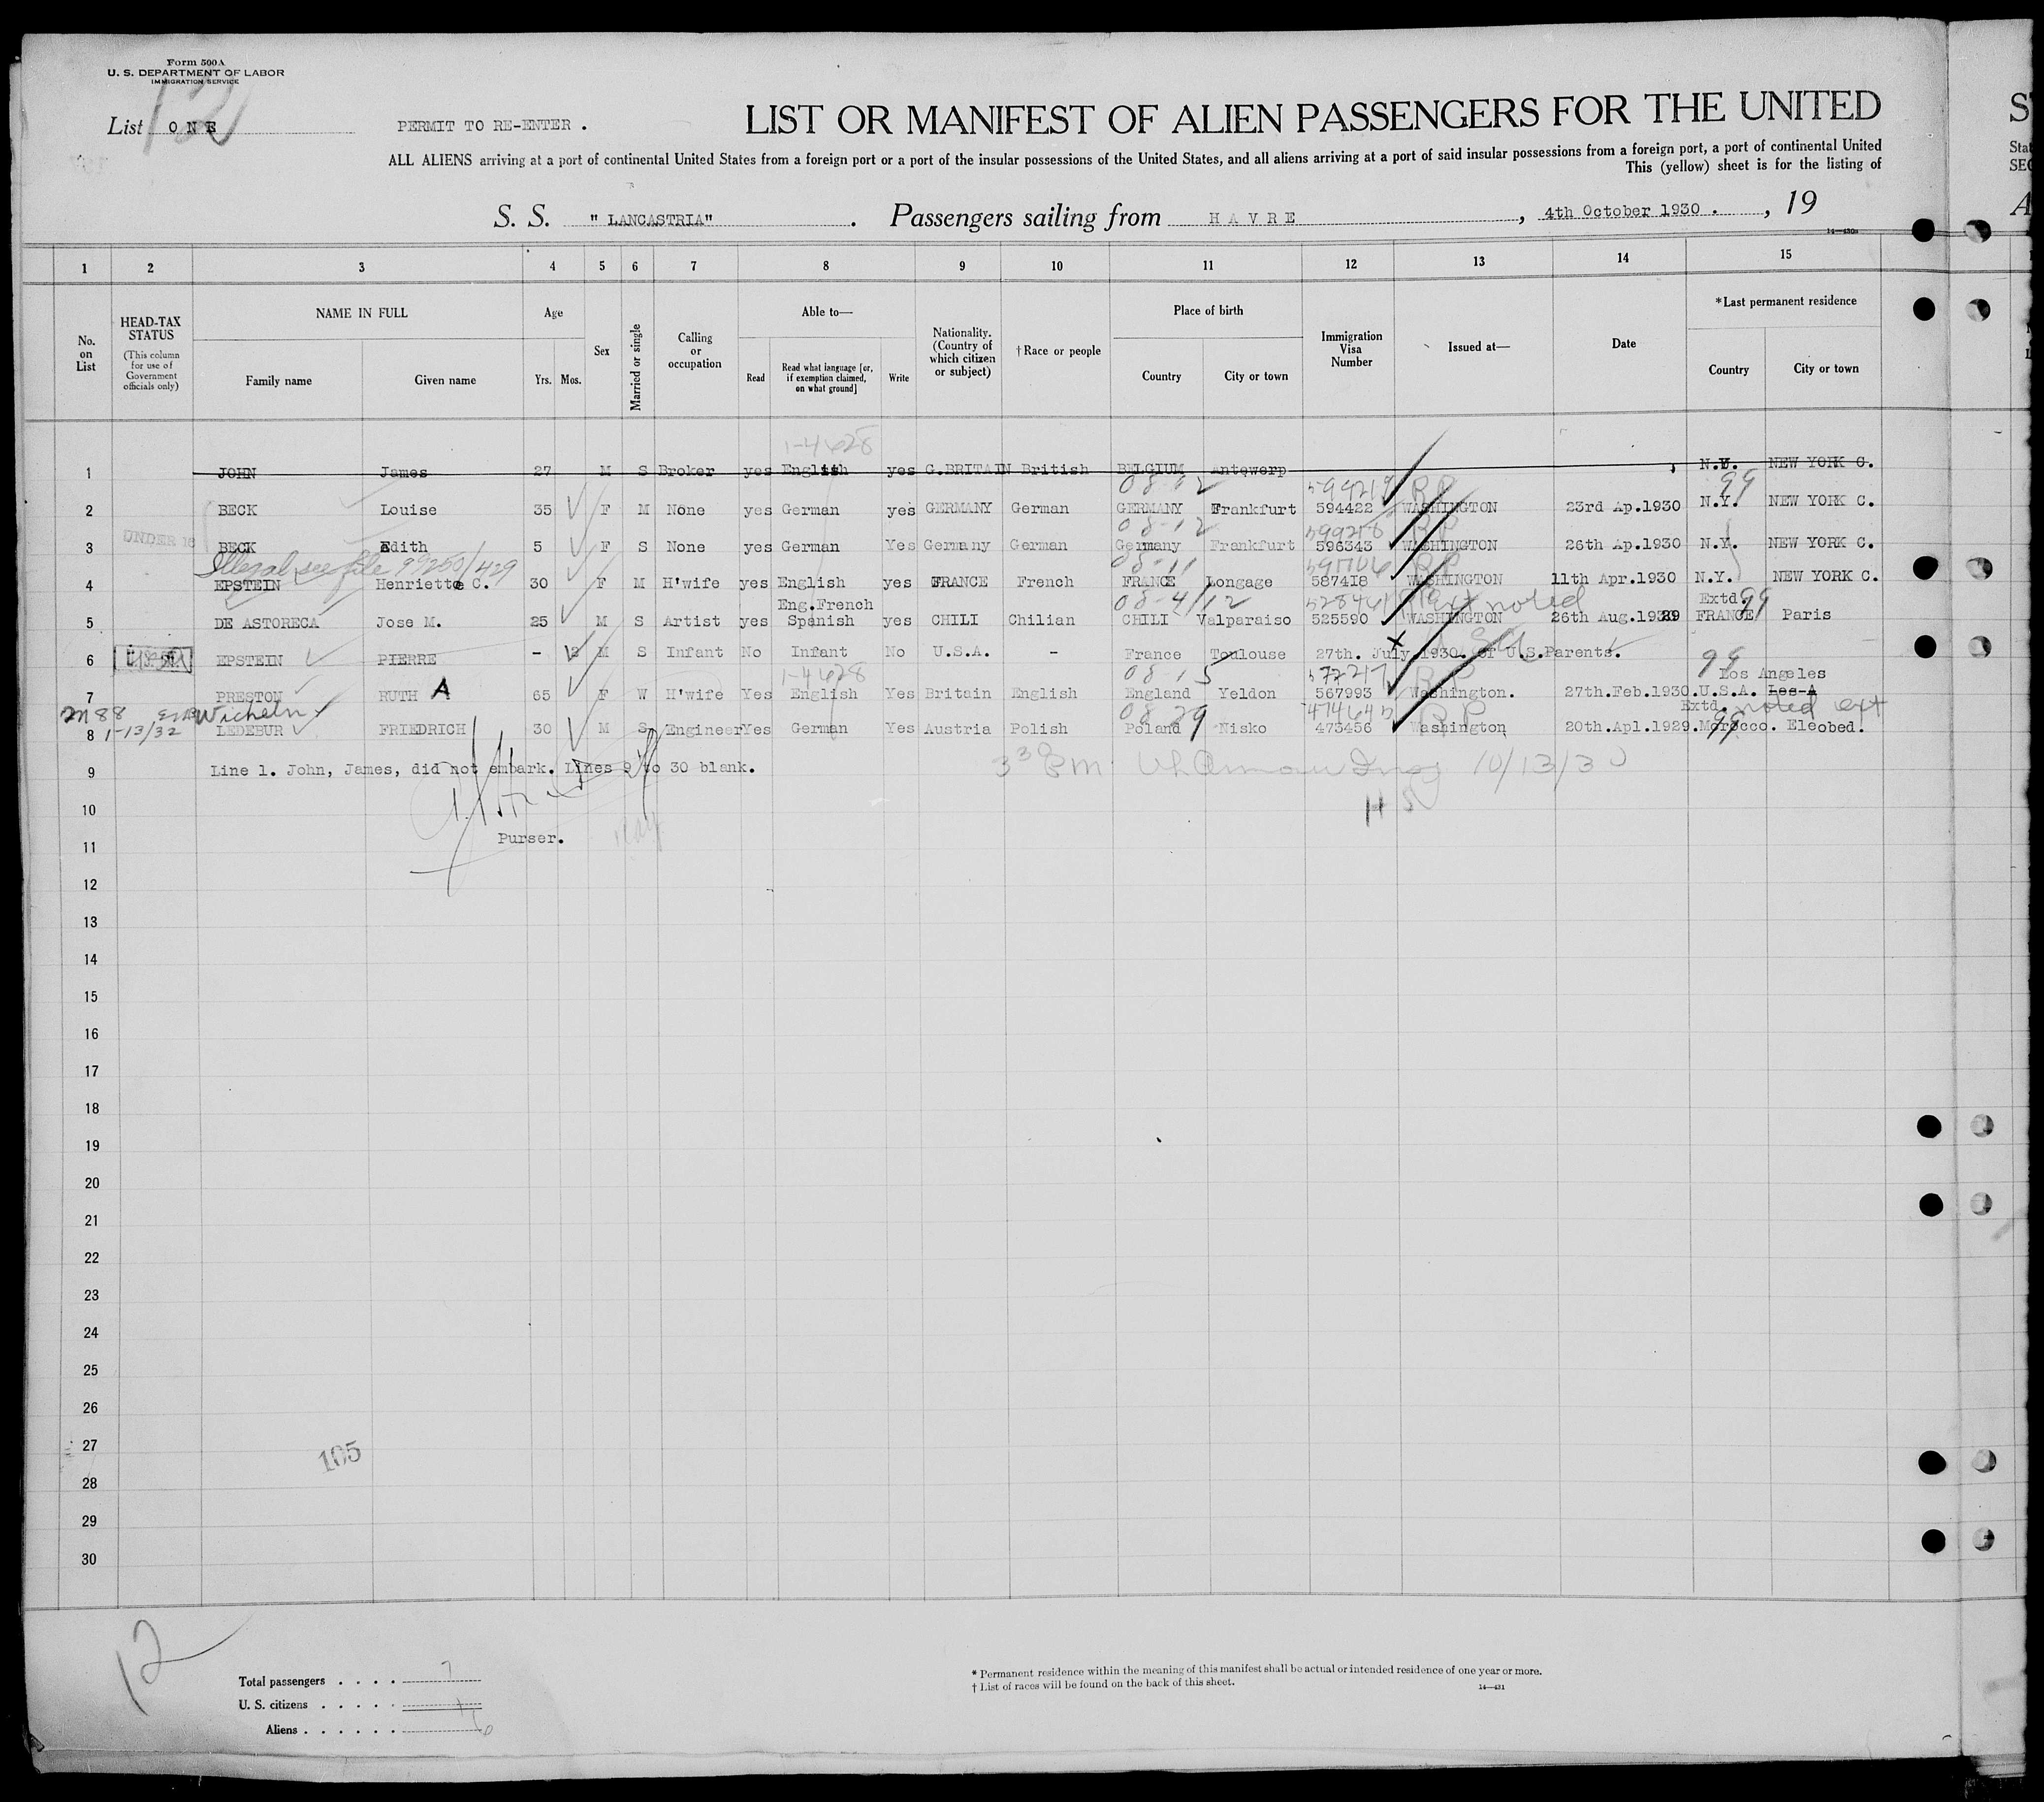 Form 500A
U. S. DEPARTMENT OF LABOR
IMMIGRATION SERVICE
12
List ONE
PERMIT TO RE-ENTER .
LIST OR MANIFEST OF ALIEN PASSENGERS FOR THE UNITED
ALL ALIENS arriving at a port of continental United States from a foreign port or a port of the insular possessions of the United States, and all aliens arriving at a port of said insular possessions from a foreign port, a port of continental United
This (yellow) sheet is for the listing of
S. S. " LANCASTRIA" . Passengers sailing from HAVRE , 4th October 1930 . , 19
1 2 3 4 5 6 7 8 9 10 11 12 13 14 15
No. on List
HEAD-TAX STATUS (This column for use of Government officials only)
NAME IN FULL
Family name Given name
Age
Yrs. Mos.
Sex
Married or single
Calling or occupation
Able to—
Read Read what language [or, if exemption claimed, on what ground] Write
Nationality. (Country of which citizen or subject)
† Race or people
Place of birth
Country City or town
Immigration Visa Number
Issued at—
Date
*Last permanent residence
Country City or town
1-4628
1 JOHN James 27 M S Broker yes English yes G.BRITAIN British BELGIUM Antewerp N.Y. NEW YORK C.
08-12 599219 RP 99
2 BECK Louise 35 F M None yes German yes GERMANY German GERMANY Frankfurt 594422 WASHINGTON 23rd Ap.1930 N.Y. NEW YORK C.
UNDER 16 08-12 RP
3 BECK Edith 5 F S None yes German Yes Germany German Germany Frankfurt 596343 WASHINGTON 26th Ap.1930 N.Y. NEW YORK C.
Illegal see file 99250/429 08-11 RP
4 EPSTEIN Henriette C. 30 F M H'wife yes English yes FRANCE French FRANCE Longage 587418 WASHINGTON 11th Apr.1930 N.Y. NEW YORK C.
Eng.French 08-4/12 ext noted Extd 99
5 DE ASTORECA Jose M. 25 M S Artist yes Spanish yes CHILI Chilian CHILI Valparaiso 525590 WASHINGTON 26th Aug.1929 FRANCE Paris
6 EPSTEIN PIERRE - M S Infant No Infant No U.S.A. - France Toulouse 27th. July 1930. Of U.S.Parents.
1-4628 08-15 572217 RP 99 Los Angeles
7 PRESTON RUTH A 65 F W H'wife Yes English Yes Britain English England Yeldon 567993 Washington. 27th.Feb.1930. U.S.A. Los-A
M88 Wicheln 08-29 RP Extd. noted ext
8 1-13/32 LEDEBUR FRIEDRICH 30 M S Engineer Yes German Yes Austria Polish Poland Nisko 473456 Washington 20th.Apl.1929. Morocco. Eleobed.
9 Line 1. John, James, did not embark. Lines 9 to 30 blank. 10/13/30
10
Purser.
11
12
13
14
15
16
17
18
19
20
21
22
23
24
25
26
27
105
28
29
30
12
Total passengers . . . . 7
U. S. citizens . . . . . 1
Aliens . . . . . . 6
* Permanent residence within the meaning of this manifest shall be actual or intended residence of one year or more.
† List of races will be found on the back of this sheet.
14—431